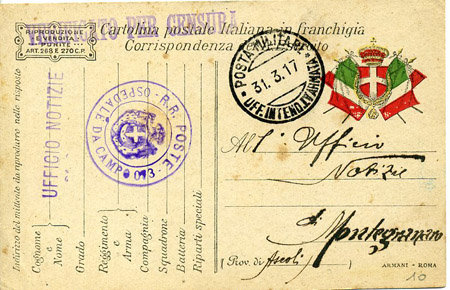 VERIFICATO PER CENSURA
RIPRODUZIONE
E VENDITA
PUNITE
ART. 268 E 270 C.P.
Cartolina postale Italiana in franchigia
Corrispondenza
POSTA MILITARE
31.3.17
UFF. INTEND. ARMATA
R.R. POSTE
OSPEDALE DA CAMPO 073
UFFICIO NOTIZIE
Indirizzo del mittente da riprodurre nelle risposte
Cognome e Nome
Grado
Reggimento e Arma
Compagnia
Squadrone
Batteria
Riparti speciali
All' Ufficio
Notizie
di Montegranaro
(Prov. di Ascoli)
ARMANI - ROMA
10